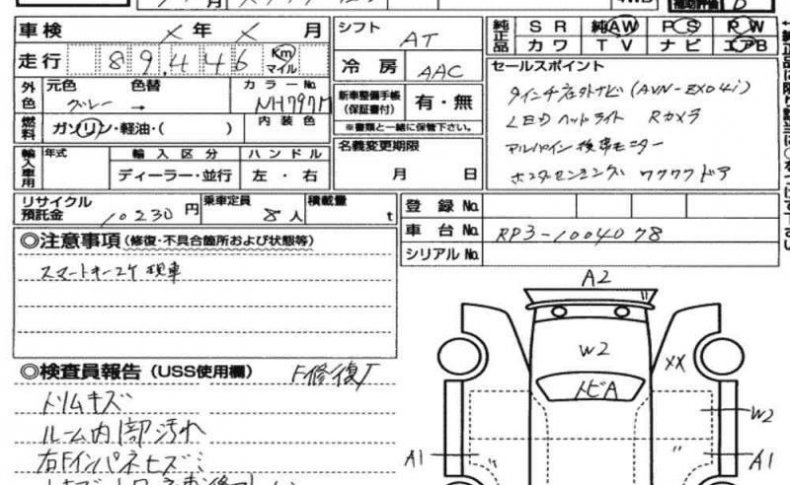 車検 × 年 × 月
走行 89,446 Km マイル
外色 元色 グレー → 色替 カラーNo. NH797M
燃料 ガソリン・軽油・( ) 内装色
輸入車用 年式 輸入区分 ハンドル
ディーラー・並行 左・右
リサイクル預託金 10230 円 乗車定員 8 人 積載量 t
シフト AT
冷房 AAC
新車整備手帳(保証書付) 有・無
※書類と一緒に保管下さい。
名義変更期限
月 日
純正品 SR 純AW PS PW
カワ TV ナビ エアB
セールスポイント
9インチ社外ナビ (AVN-EX04i)
LEDヘッドライト Rカメラ
アルパイン後席モニター
ホンダセンシング ワクワクドア
登録No.
車台No. RP3-1004078
シリアルNo.
◎注意事項(修復・不具合箇所および状態等)
スマートキー2ケ 現車
◎検査員報告(USS使用欄) F修復歴
トリムキズ
ルーム内部汚れ
右Fインパネキズ
A2
W2
トビA
XX
W2
A1
A1